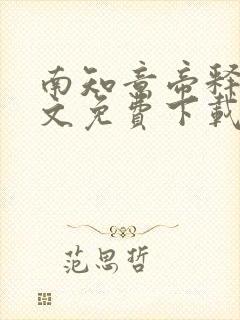 南知意帝释
文免费下载
范思哲